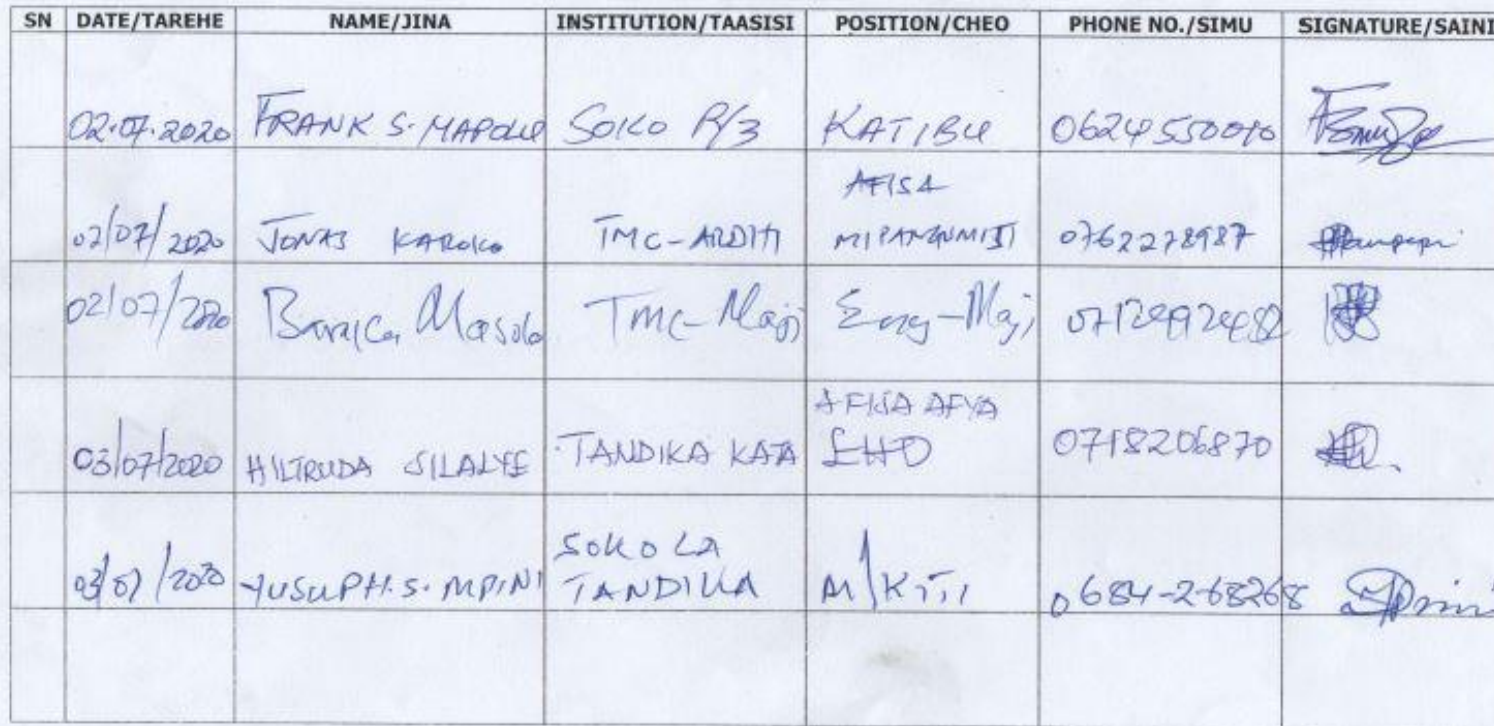 SN DATE/TAREHE NAME/JINA INSTITUTION/TAASISI POSITION/CHEO PHONE NO./SIMU SIGNATURE/SAINI
02.07.2020 FRANK S. MAPOLU SOKO R/3 KATIBU
AFISA
02/07/2020 JONAS KAROKO TMC-ARDHI MIPANGOMIJI 0762278987
02/07/2020 Baraka Masola TMC-Maji Eng-Maji
AFISA AFYA
03/07/2020 HILTRUDA SILALYE TANDIKA KATA EHO 0718206870
SOKO LA
03/07/2020 YUSUPH.S. MPINI TANDIKA M/KITI 0684-268268